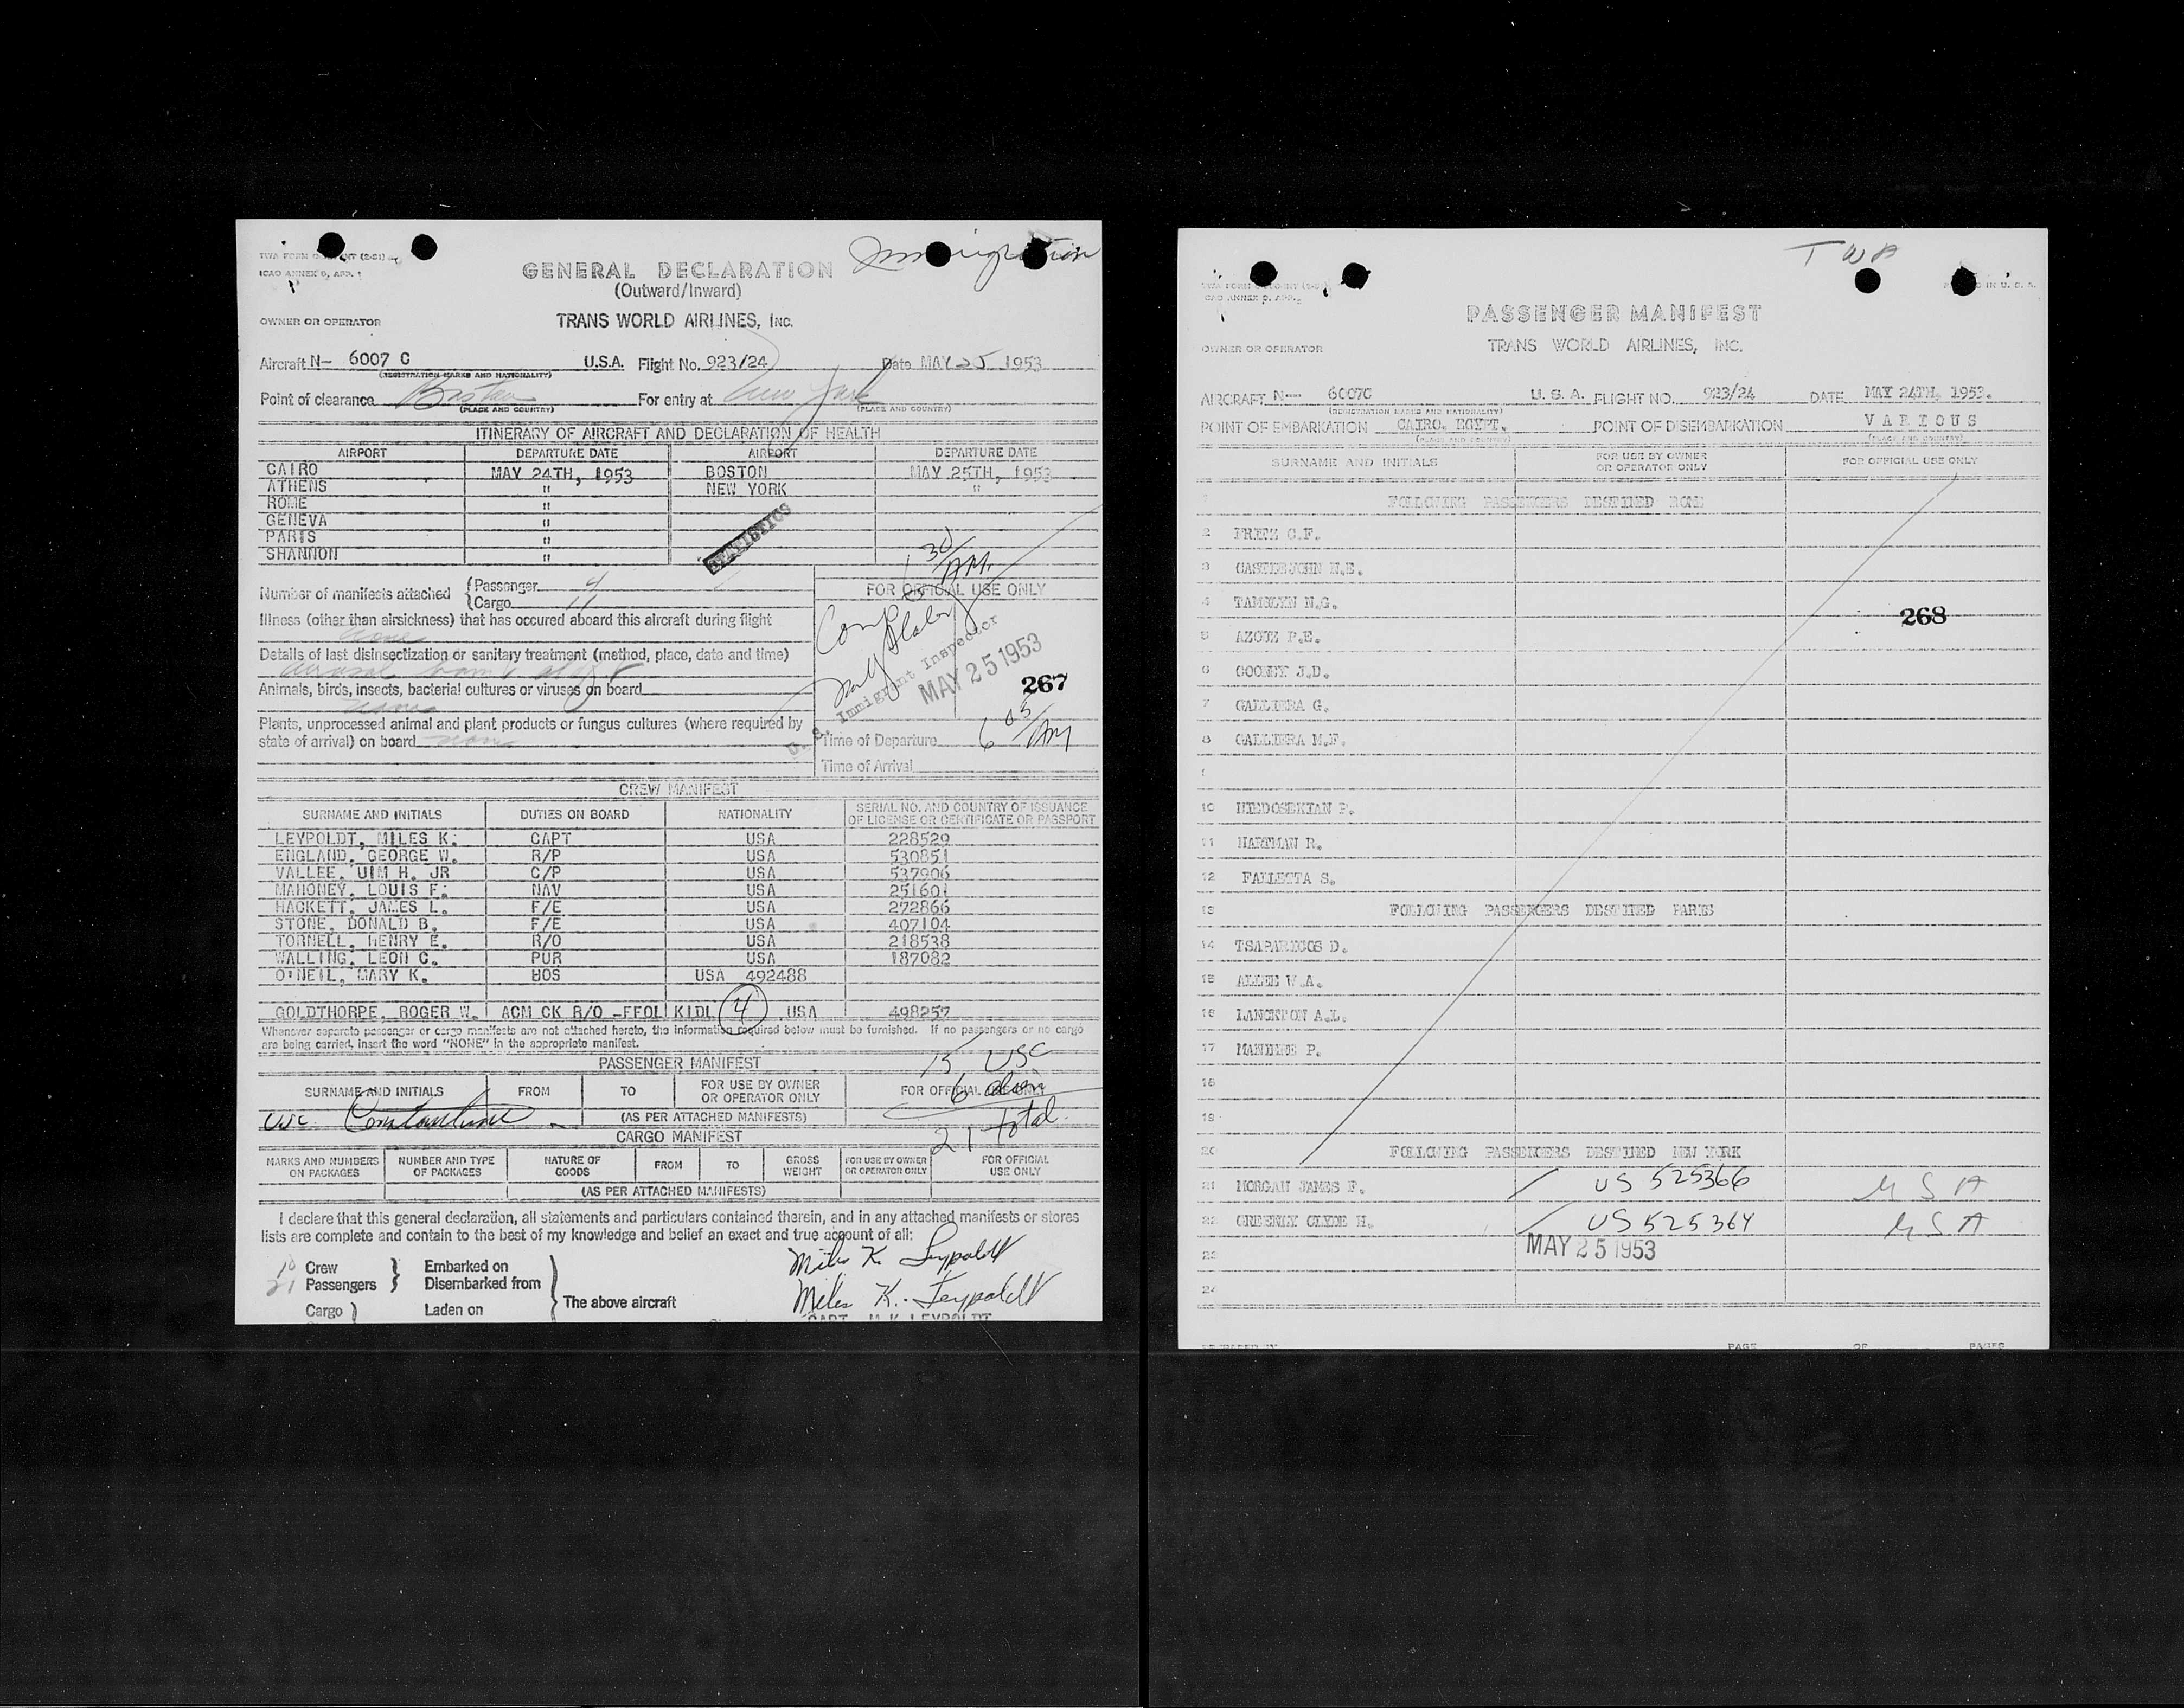 Immigration
GENERAL DECLARATION
(Outward/Inward)
ICAO ANNEX 9, APP. 1
OWNER OR OPERATOR TRANS WORLD AIRLINES, INC.
Aircraft N- 6007 C U.S.A. Flight No. 923/24 Date MAY 25 1953
(REGISTRATION MARKS AND NATIONALITY)
Point of clearance Boston For entry at New York
(PLACE AND COUNTRY) (PLACE AND COUNTRY)
ITINERARY OF AIRCRAFT AND DECLARATION OF HEALTH
AIRPORT DEPARTURE DATE AIRPORT DEPARTURE DATE
CAIRO MAY 24TH, 1953 BOSTON MAY 25TH, 1953
ATHENS " NEW YORK "
ROME "
GENEVA "
PARIS "
SHANNON "
STATISTICS
30/AM.
Number of manifests attached { Passenger 4
{ Cargo 11
FOR OFFICIAL USE ONLY
Illness (other than airsickness) that has occured aboard this aircraft during flight
none
Details of last disinsectization or sanitary treatment (method, place, date and time)
Animals, birds, insects, bacterial cultures or viruses on board
none
Plants, unprocessed animal and plant products or fungus cultures (where required by
state of arrival) on board none
U. S. Immigrant Inspector
MAY 25 1953
267
Time of Departure 6 05/AM
Time of Arrival
CREW MANIFEST
SURNAME AND INITIALS DUTIES ON BOARD NATIONALITY SERIAL NO. AND COUNTRY OF ISSUANCE
OF LICENSE OR CERTIFICATE OR PASSPORT
LEYPOLDT, MILES K. CAPT USA 228529
ENGLAND, GEORGE W. R/P USA 530851
VALLEE, UIM H. JR C/P USA 537906
MAHONEY, LOUIS F. NAV USA 251601
HACKETT, JAMES L. F/E USA 272866
STONE, DONALD B. F/E USA 407104
TORNELL, HENRY E. R/O USA 218538
WALLING, LEON C. PUR USA 187082
O'NEIL, MARY K. HOS USA 492488
GOLDTHORPE, ROGER W. ACM CK R/O -FFOL KIDL 4 USA 498257
Whenever separate passenger or cargo manifests are not attached hereto, the information required below must be furnished. If no passengers or no cargo
are being carried, insert the word "NONE" in the appropriate manifest.
PASSENGER MANIFEST
15 USC
SURNAME AND INITIALS FROM TO FOR USE BY OWNER
OR OPERATOR ONLY FOR OFFICIAL USE ONLY
6 alien
(AS PER ATTACHED MANIFESTS)
21 total
CARGO MANIFEST
MARKS AND NUMBERS
ON PACKAGES NUMBER AND TYPE
OF PACKAGES NATURE OF
GOODS FROM TO GROSS
WEIGHT FOR USE BY OWNER
OR OPERATOR ONLY FOR OFFICIAL
USE ONLY
(AS PER ATTACHED MANIFESTS)
I declare that this general declaration, all statements and particulars contained therein, and in any attached manifests or stores
lists are complete and contain to the best of my knowledge and belief an exact and true account of all:
10 Crew } Embarked on
21 Passengers } Disembarked from
Cargo } Laden on
The above aircraft
Miles K. Leypoldt
Miles K. Leypoldt
CAPT M K LEYPOLDT
TWA
PASSENGER MANIFEST
OWNER OR OPERATOR TRANS WORLD AIRLINES, INC.
AIRCRAFT N- 6007C U. S. A. FLIGHT NO. 923/24 DATE MAY 24TH, 1953.
(REGISTRATION MARKS AND NATIONALITY)
POINT OF EMBARKATION CAIRO, EGYPT. POINT OF DISEMBARKATION VARIOUS
(PLACE AND COUNTRY) (PLACE AND COUNTRY)
SURNAME AND INITIALS FOR USE BY OWNER
OR OPERATOR ONLY FOR OFFICIAL USE ONLY
1 FOLLOWING PASSENGERS DESTINED ROME
2 FRITZ C.F.
3 CASTERJOHN N.E.
4 TAMBLYN N.G.
268
5 AZOUZ P.E.
6 COONEY J.D.
7 GALLIERA G.
8 GALLIERA M.F.
10
11 HARTMAN R.
12 FALLETTA S.
13 FOLLOWING PASSENGERS DESTINED PARIS
14 TSAPARICOS D.
15 ALLEE W.A.
16 LANGTON A.L.
17
18
19
20 FOLLOWING PASSENGERS DESTINED NEW YORK
21 MORGAN JAMES F. US 525366 USA
22 GREENLY CLYDE H. US 525364 USA
23 MAY 25 1953
24
PAGE OF PAGES